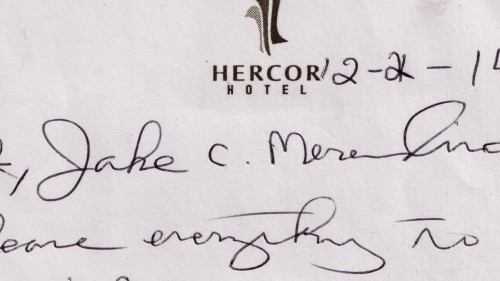 HERCOR
HOTEL
12-2-14
I, Jake C. Merendino
leave everything to